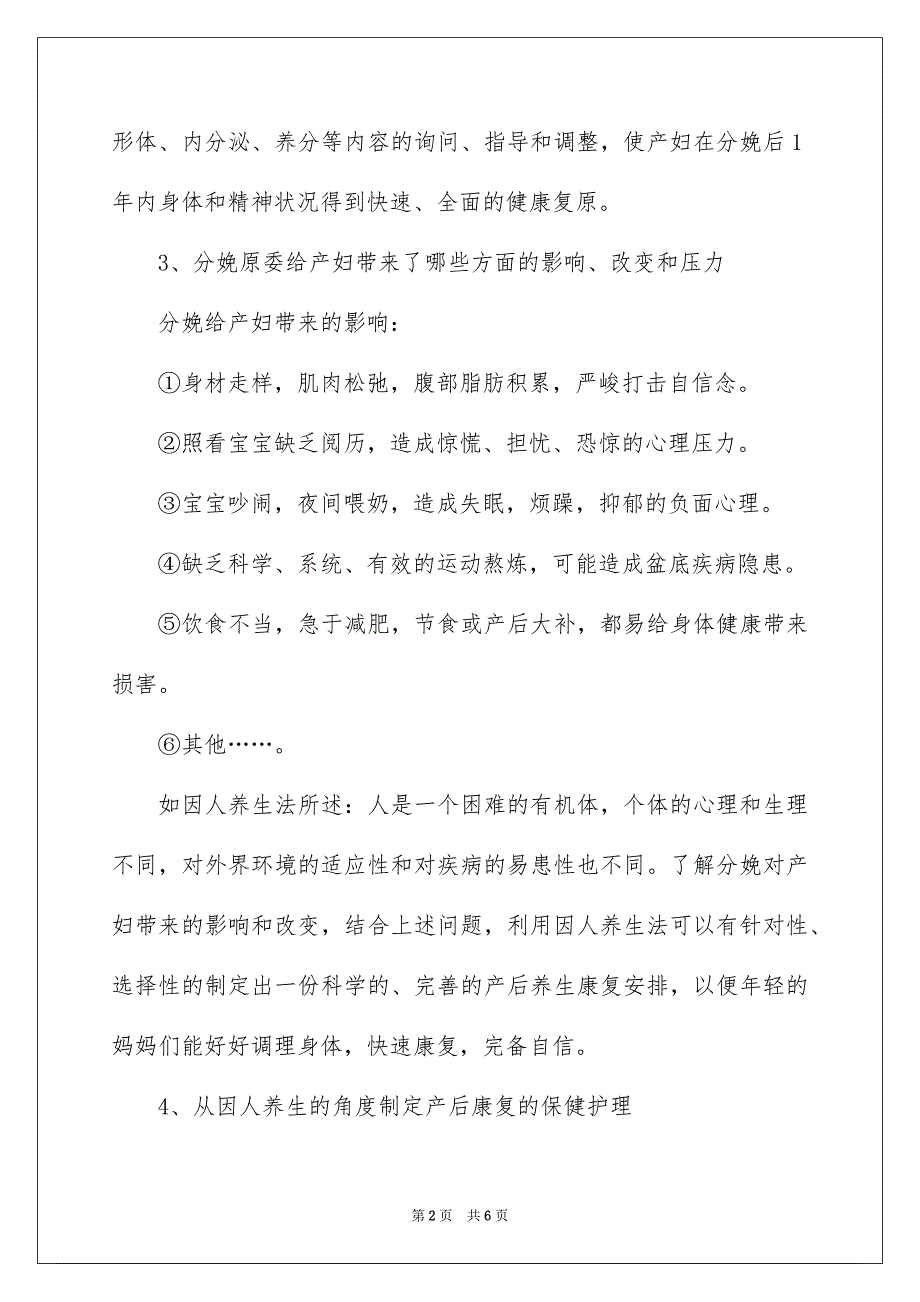 形体、内分泌、养分等内容的询问、指导和调整，使产妇在分娩后 1
年内身体和精神状况得到快速、全面的健康复原。
3、分娩原委给产妇带来了哪些方面的影响、改变和压力
分娩给产妇带来的影响：
①身材走样，肌肉松弛，腹部脂肪积累，严峻打击自信念。
②照看宝宝缺乏阅历，造成惊慌、担忧、恐惊的心理压力。
③宝宝吵闹，夜间喂奶，造成失眠，烦躁，抑郁的负面心理。
④缺乏科学、系统、有效的运动熬炼，可能造成盆底疾病隐患。
⑤饮食不当，急于减肥，节食或产后大补，都易给身体健康带来
损害。
⑥其他……。
如因人养生法所述：人是一个困难的有机体，个体的心理和生理
不同，对外界环境的适应性和对疾病的易患性也不同。了解分娩对产
妇带来的影响和改变，结合上述问题，利用因人养生法可以有针对性、
选择性的制定出一份科学的、完善的产后养生康复安排，以便年轻的
妈妈们能好好调理身体，快速康复，完备自信。
4、从因人养生的角度制定产后康复的保健护理
第 2 页 共 6 页